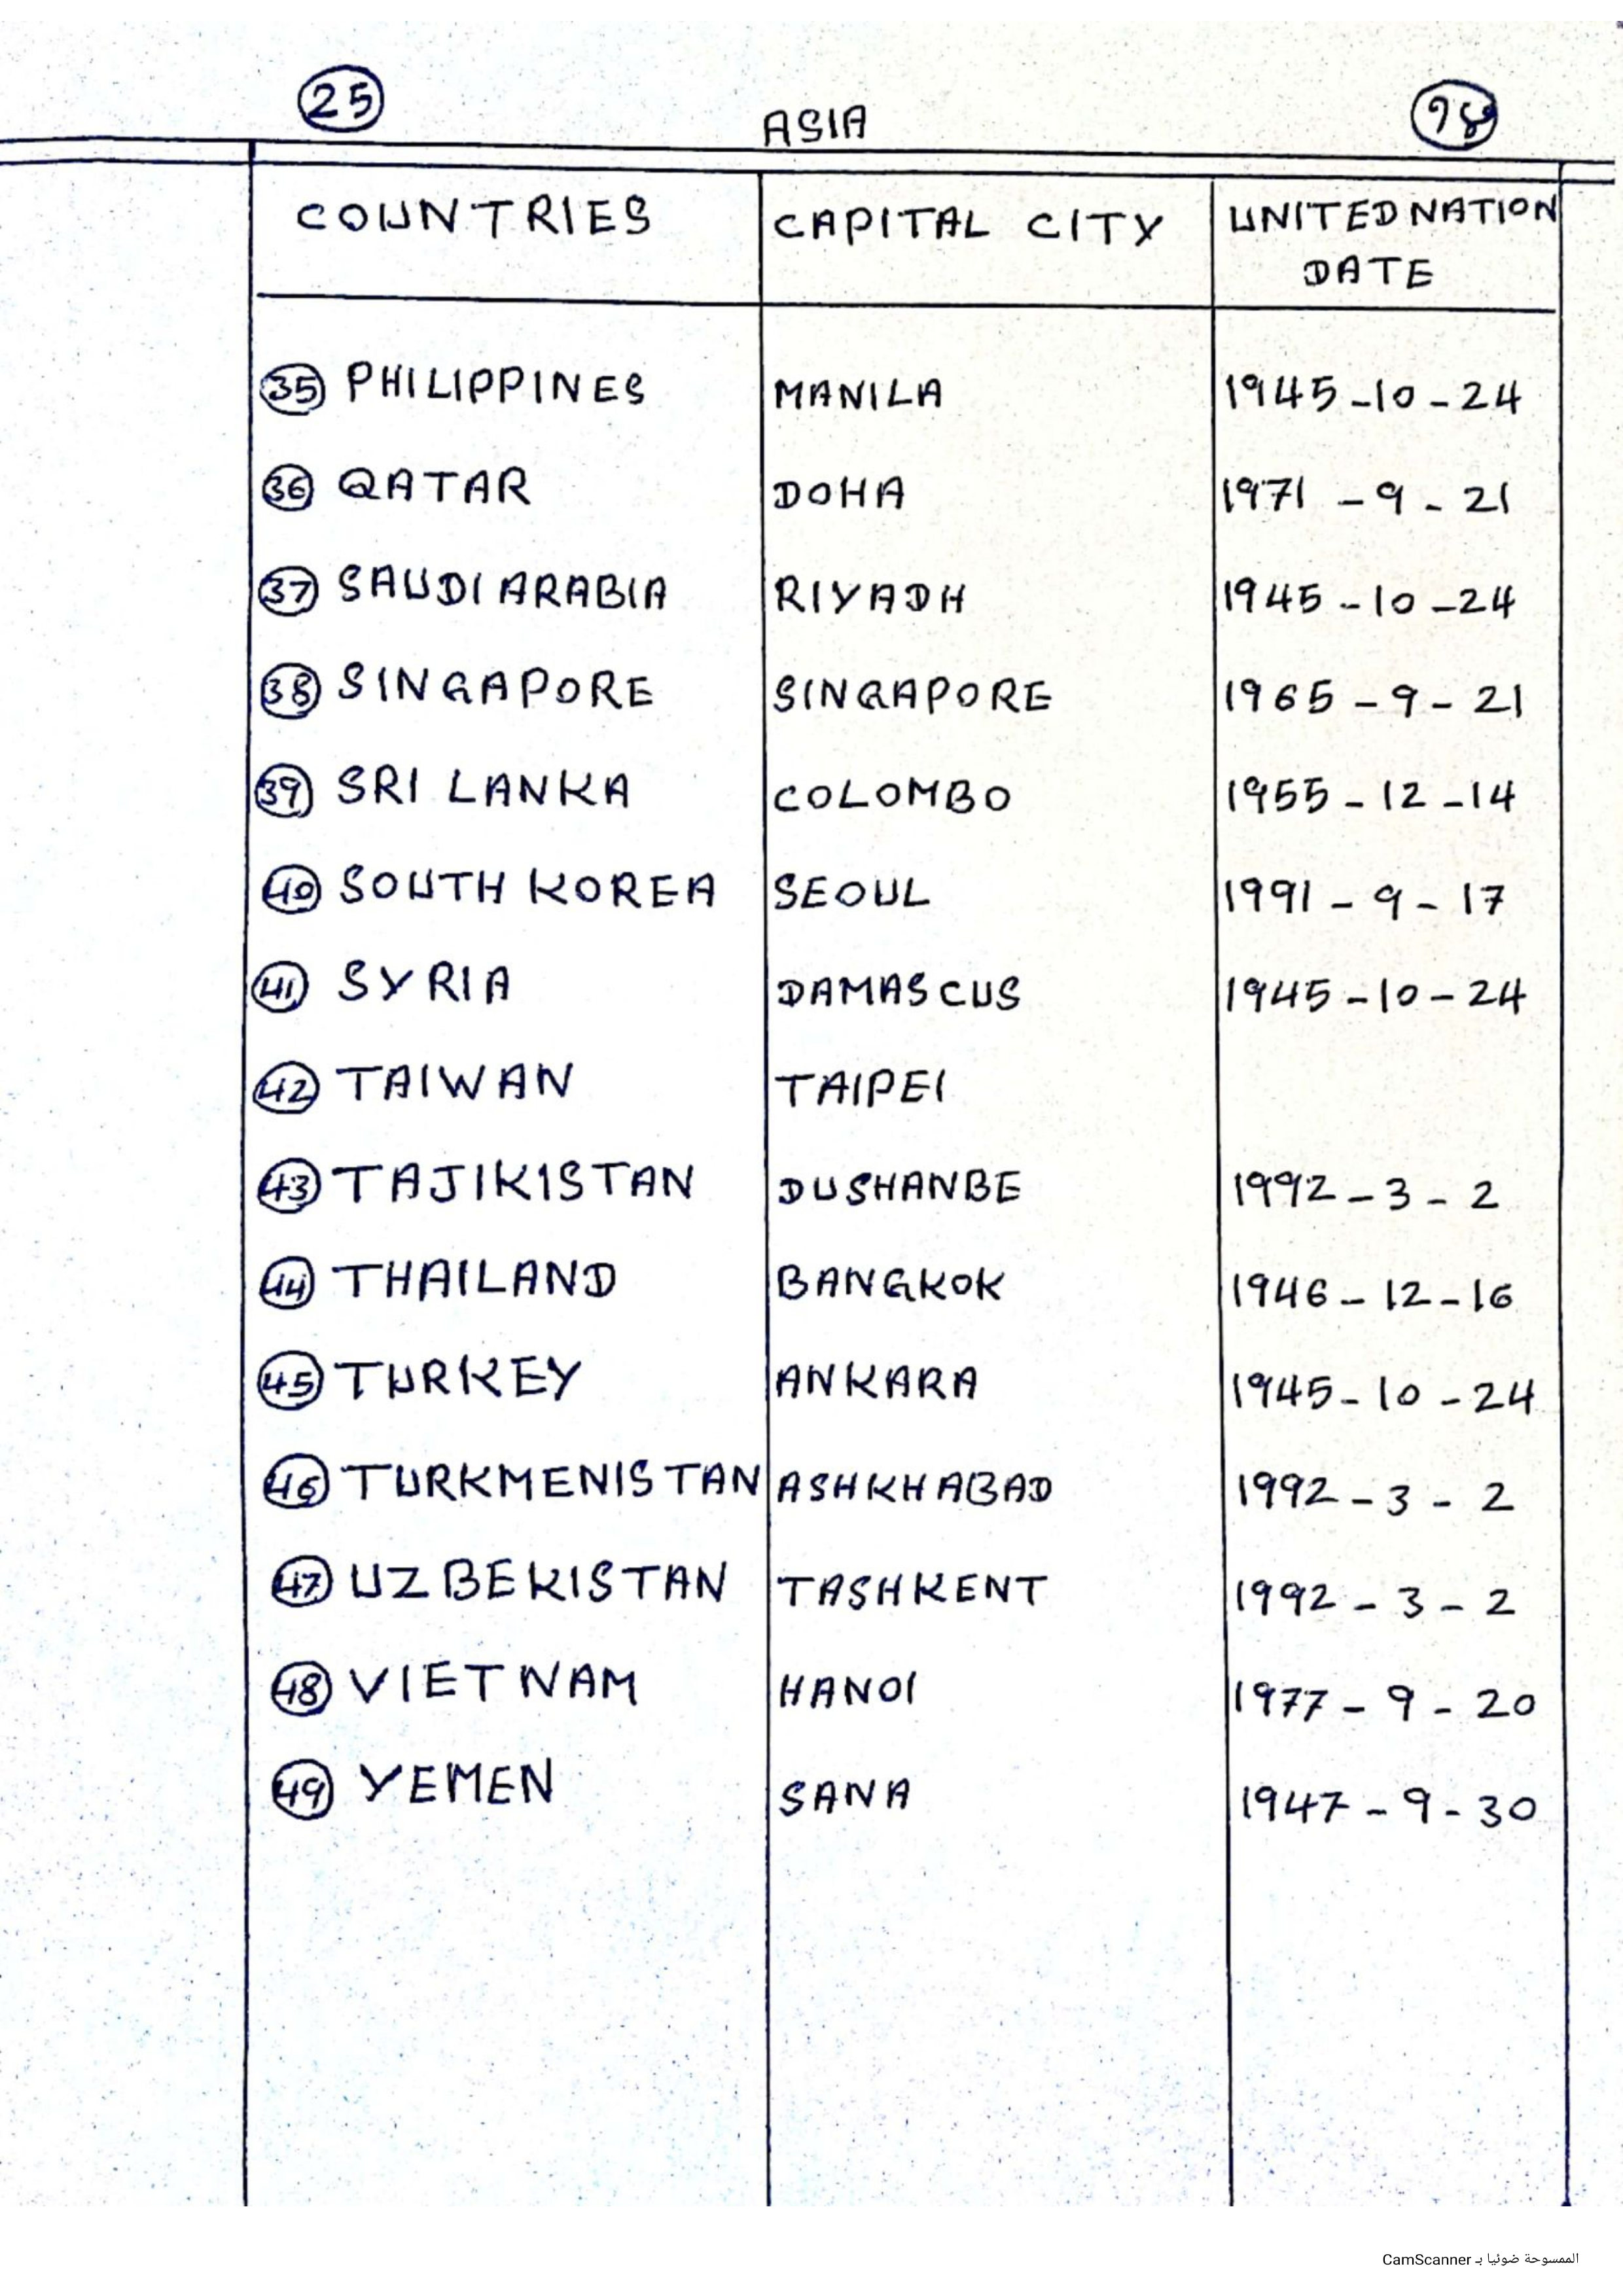 25 ASIA 98
COUNTRIES CAPITAL CITY UNITED NATION
DATE
35 PHILIPPINES MANILA 1945-10-24
36 QATAR DOHA 1971-9-21
37 SAUDI ARABIA RIYADH 1945-10-24
38 SINGAPORE SINGAPORE 1965-9-21
39 SRI LANKA COLOMBO 1955-12-14
40 SOUTH KOREA SEOUL 1991-9-17
41 SYRIA DAMASCUS 1945-10-24
42 TAIWAN TAIPEI
43 TAJIKISTAN DUSHANBE 1992-3-2
44 THAILAND BANGKOK 1946-12-16
45 TURKEY ANKARA 1945-10-24
46 TURKMENISTAN ASHKHABAD 1992-3-2
47 UZBEKISTAN TASHKENT 1992-3-2
48 VIETNAM HANOI 1977-9-20
49 YEMEN SANA 1947-9-30
الممسوحة ضوئيا بـ CamScanner